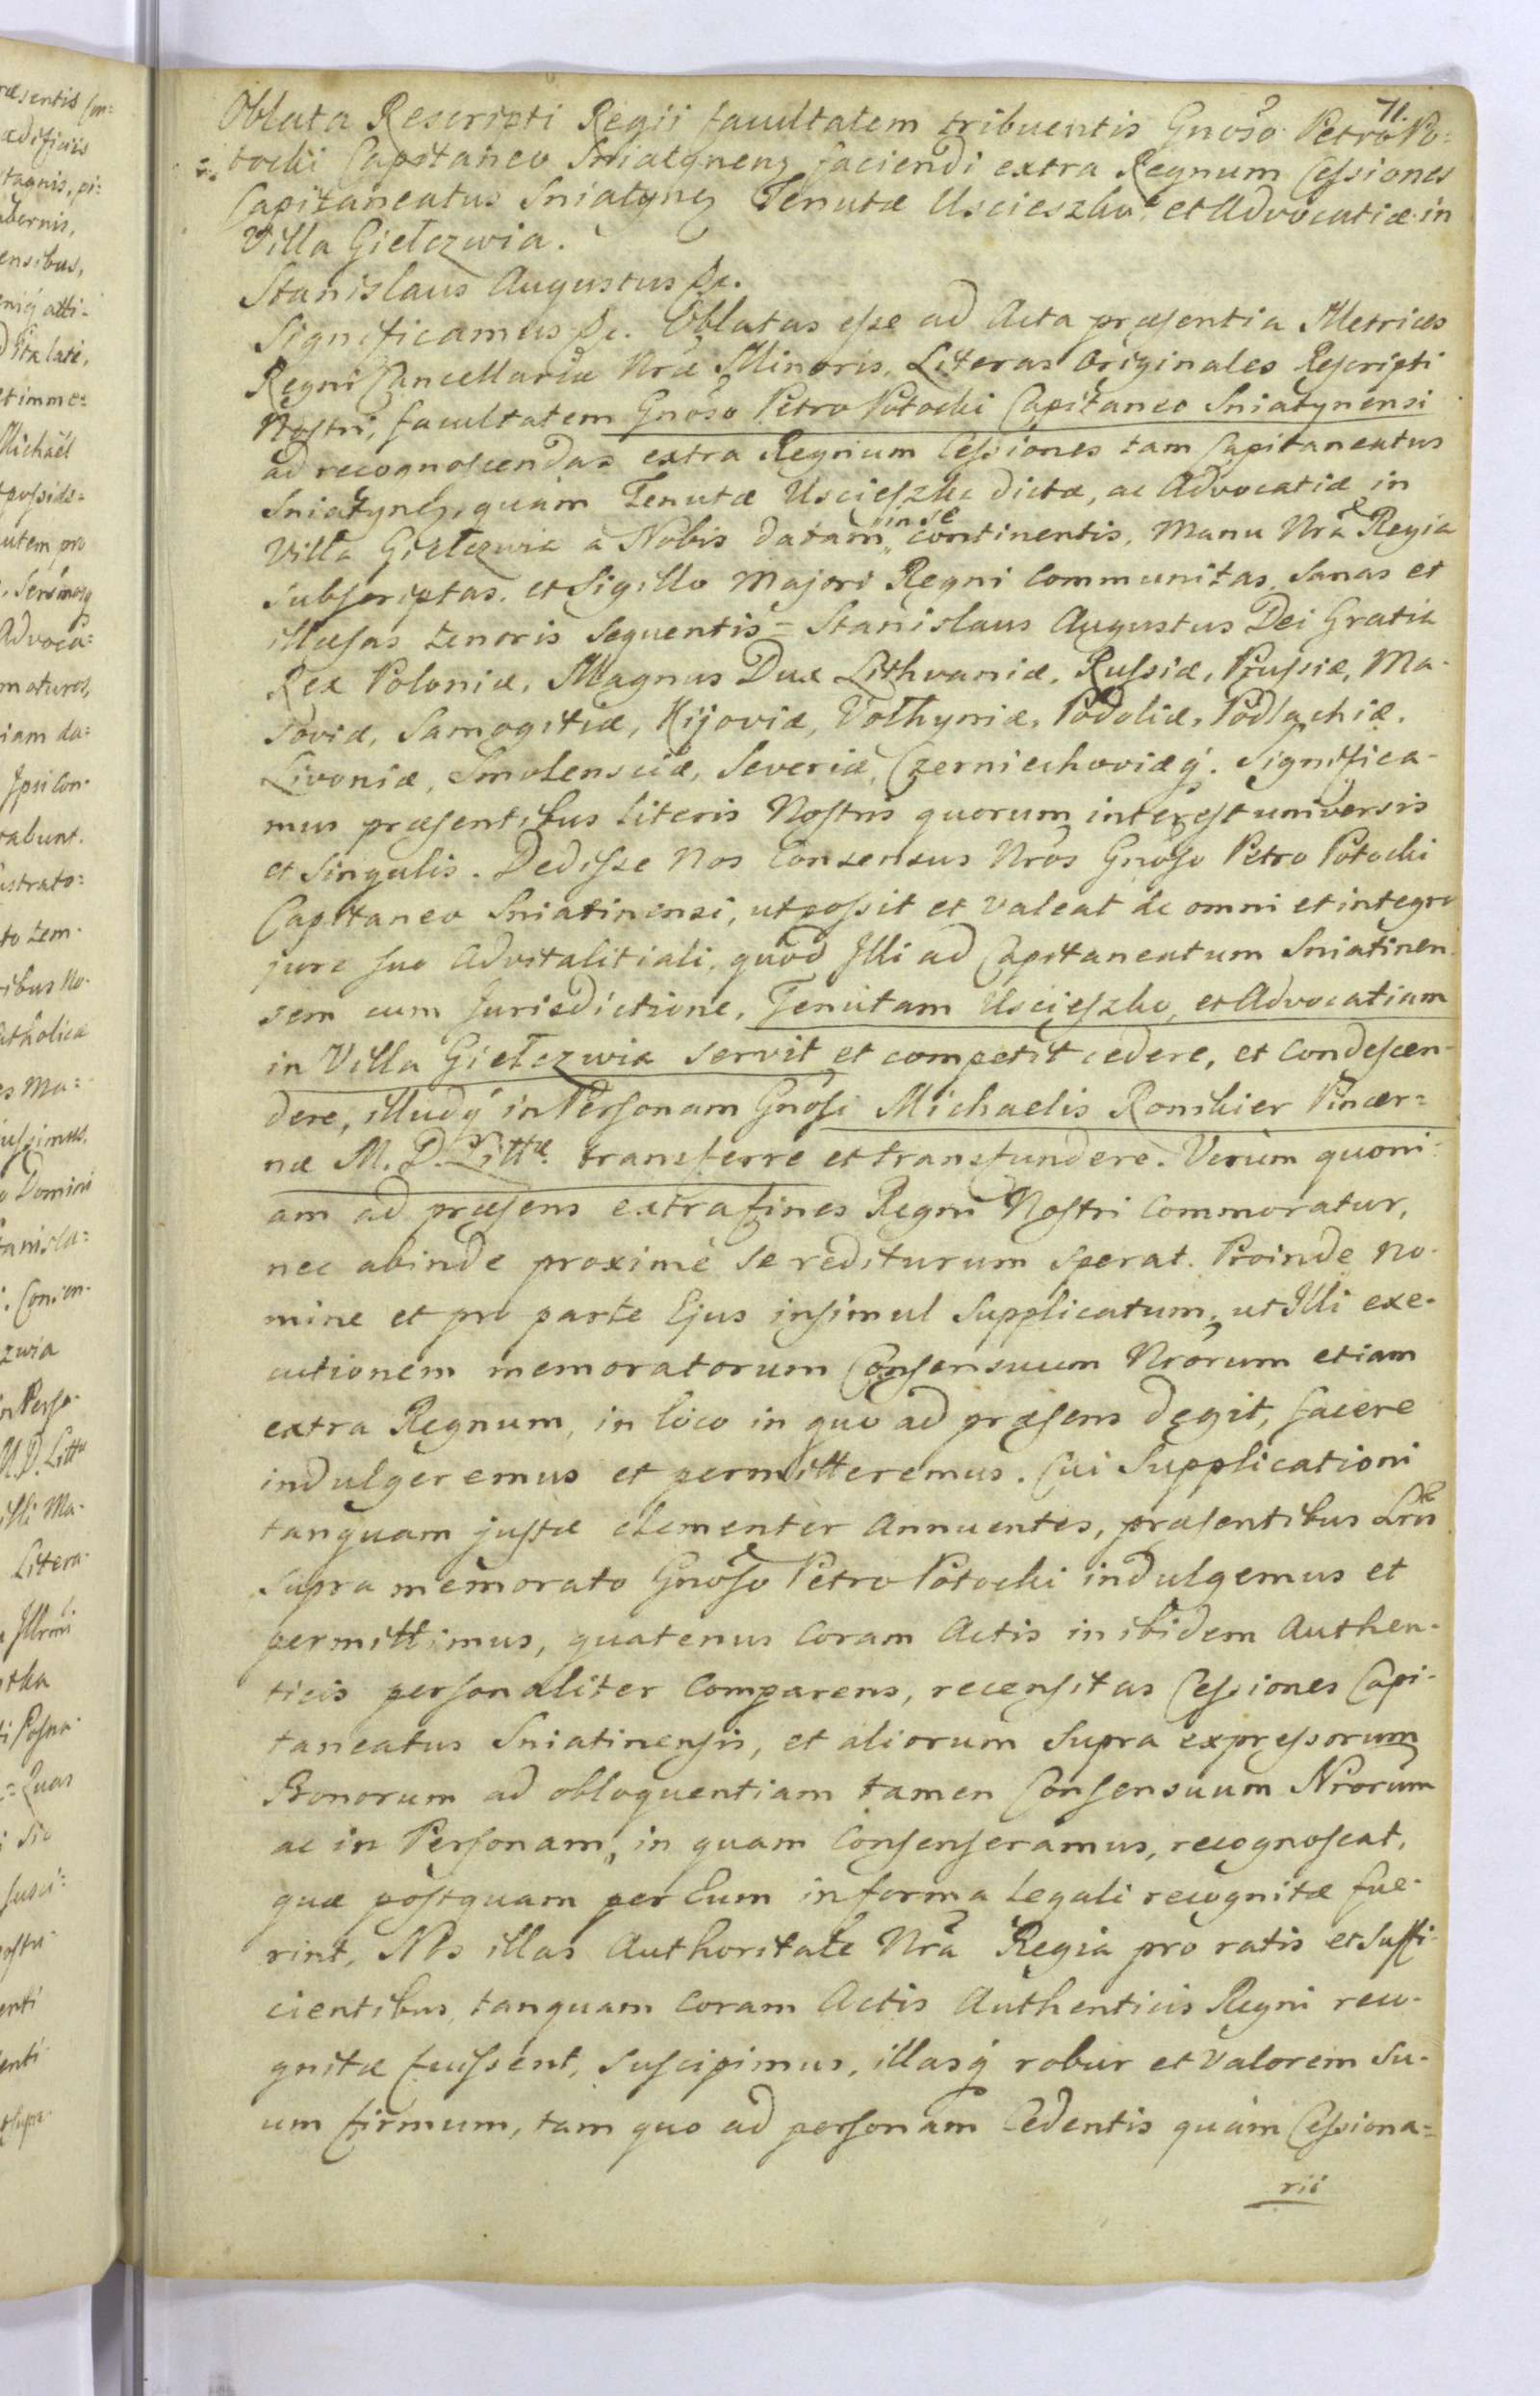 71.
Oblata Rescripti Regii facultatem tribuentis Gnoso Petro Po-
tocki Capitaneo Sniatynenz faciendi extra Regnum Cessiones
Capitaneatus Sniatynz Tenutæ Uscieszko et Advocatiæ in
Villa Giełczwia.
Stanislaus Augustus &c.
Significamus &c. Oblatas esse ad Acta præsentia Metrices
Regni Cancellariæ Nræ Minoris, Literas Originales Rescripti
Nostri, facultatem Gnoso Petro Potocki Capitaneo Sniatynensi
ad recognoscendas extra Regnum Cessiones tam Capitaneatus
Sniatynz, quàm Tenutæ Uscieszko dictæ, ac Advocatiæ in
Villa Giełczwia à Nobis datam in se continentis, Manu Nra Regia
subscriptas, et Sigillo Majori Regni communitas, Sanas et
illæsas tenoris sequentis = Stanislaus Augustus Dei Gratia
Rex Poloniæ, Magnus Dux Lithvaniæ, Russiæ, Prussiæ, Ma-
soviæ, Samogitiæ, Kijoviæ, Vołhyniæ, Podoliæ, Podlachiæ,
Livoniæ, Smolensciæ, Severiæ, Czerniechoviæq. Significa-
mus præsentibus literis Nostris quorum interest universis
et singulis. Dedisse Nos Consensus Nros Gnoso Petro Potocki
Capitaneo Sniatinensi, ut possit et valeat de omni et integro
jure suo Advitalitiali, quod Illi ad Capitaneatum Sniatinen-
sem cum Jurisdictione, Tenutam Uscieszko, et Advocatiam
in Villa Giełczwia servit et competit cedere, et Condescen-
dere, illudq in Personam Gnosi Michaelis Ronikier Pincer=
næ M. D. Littæ transferre et transfundere. Verùm quoni-
am ad præsens extra fines Regni Nostri Commoratur,
nec abinde proximè se rediturum sperat. Proinde No-
mine et pro parte Ejus insimul Supplicatum, ut Illi exe-
cutionem memoratorum Consensuum Nrorum etiam
extra Regnum, in loco in quo ad præsens degit, facere
indulgeremus et permitteremus. Cui Supplicationi
tanquam justæ clementer Annuentes, præsentibus Lris
supra memorato Gnoso Petro Potocki indulgemus et
permittimus, quatenus Coram Actis inibidem Authen-
ticis personaliter Comparens, recensitas Cessiones Capi-
taneatus Sniatinensis, et aliorum Supra expressorum
Bonorum ad obloquentiam tamen Consensuum Nrorum
ac in Personam, in quam Consenseramus, recognoscat,
quæ postquam per Eum in forma legali recognitæ fue-
rint, Nos illas Authoritate Nra Regia pro ratis et Suffi-
cientibus, tanquam Coram Actis Authenticis Regni reco-
gnitæ fuissent, suscipimus, illasq robur et Valorem Su-
um firmum, tam quo ad personam Cedentis quàm Cessiona=
rii